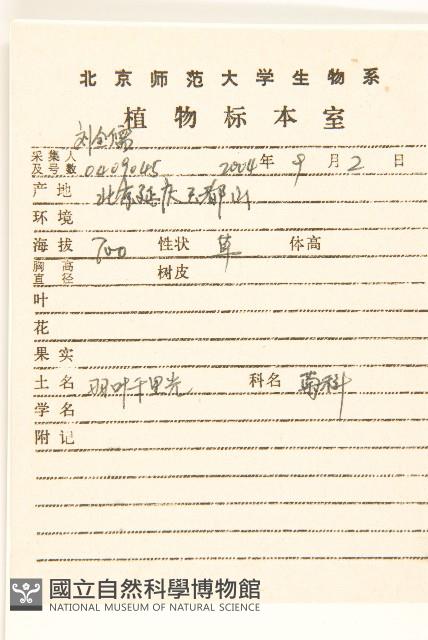 北京师范大学生物系
植物标本室
刘全儒
采集人及号数 0409045 2004年 9 月 2 日
产地 北京延庆玉都山
环境
海拔 700 性状 草 体高
胸高直径 树皮
叶
花
果实
土名 羽叶千里光 科名 菊科
学名
附记
國立自然科學博物館
NATIONAL MUSEUM OF NATURAL SCIENCE